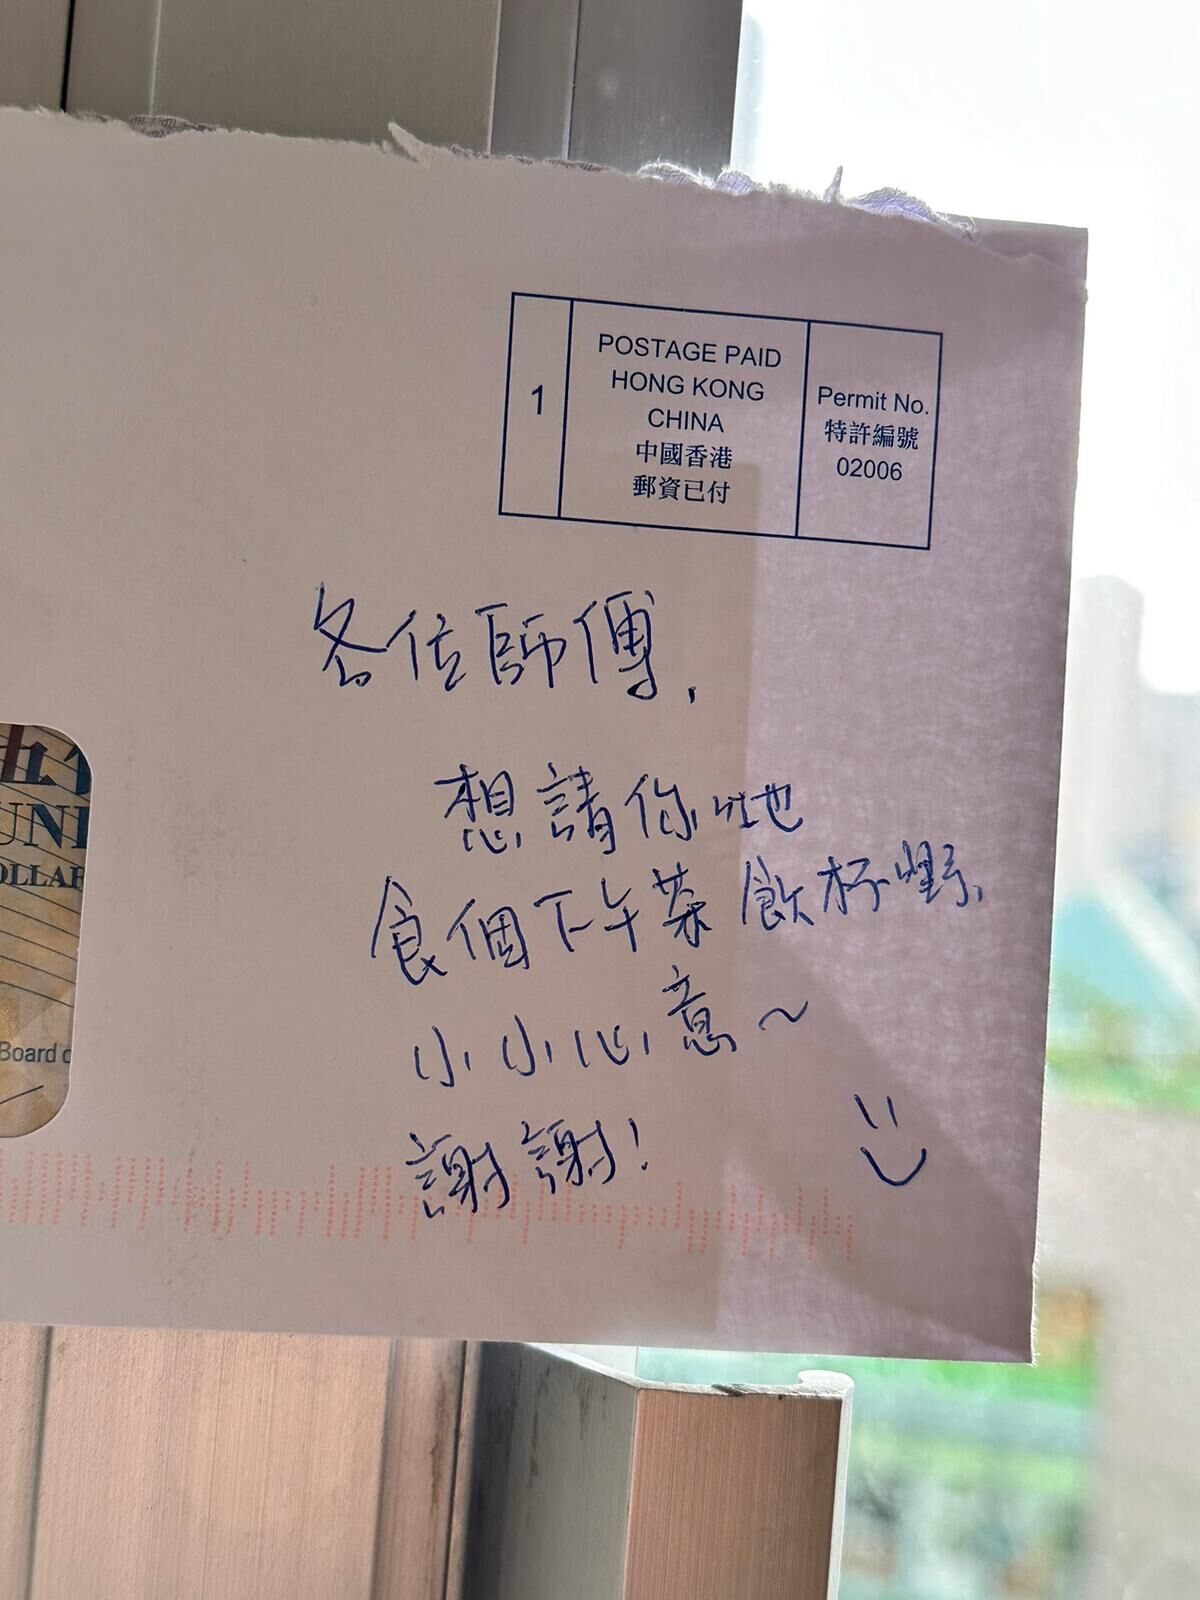 1
POSTAGE PAID
HONG KONG
CHINA
中國香港
郵資已付
Permit No.
特許編號
02006
各位師傅,
想請你哋
食個下午茶飲杯嘢,
小小心意~
謝謝!
Board